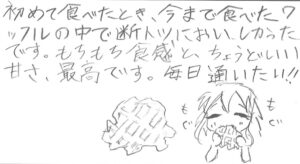 初めて食べたとき、今まで食べたワ
ッフルの中で断トツにおいしかった
です。もちもち食感と、ちょうどいい
甘さ、最高です。毎日通いたい!!
もぐ
もぐ